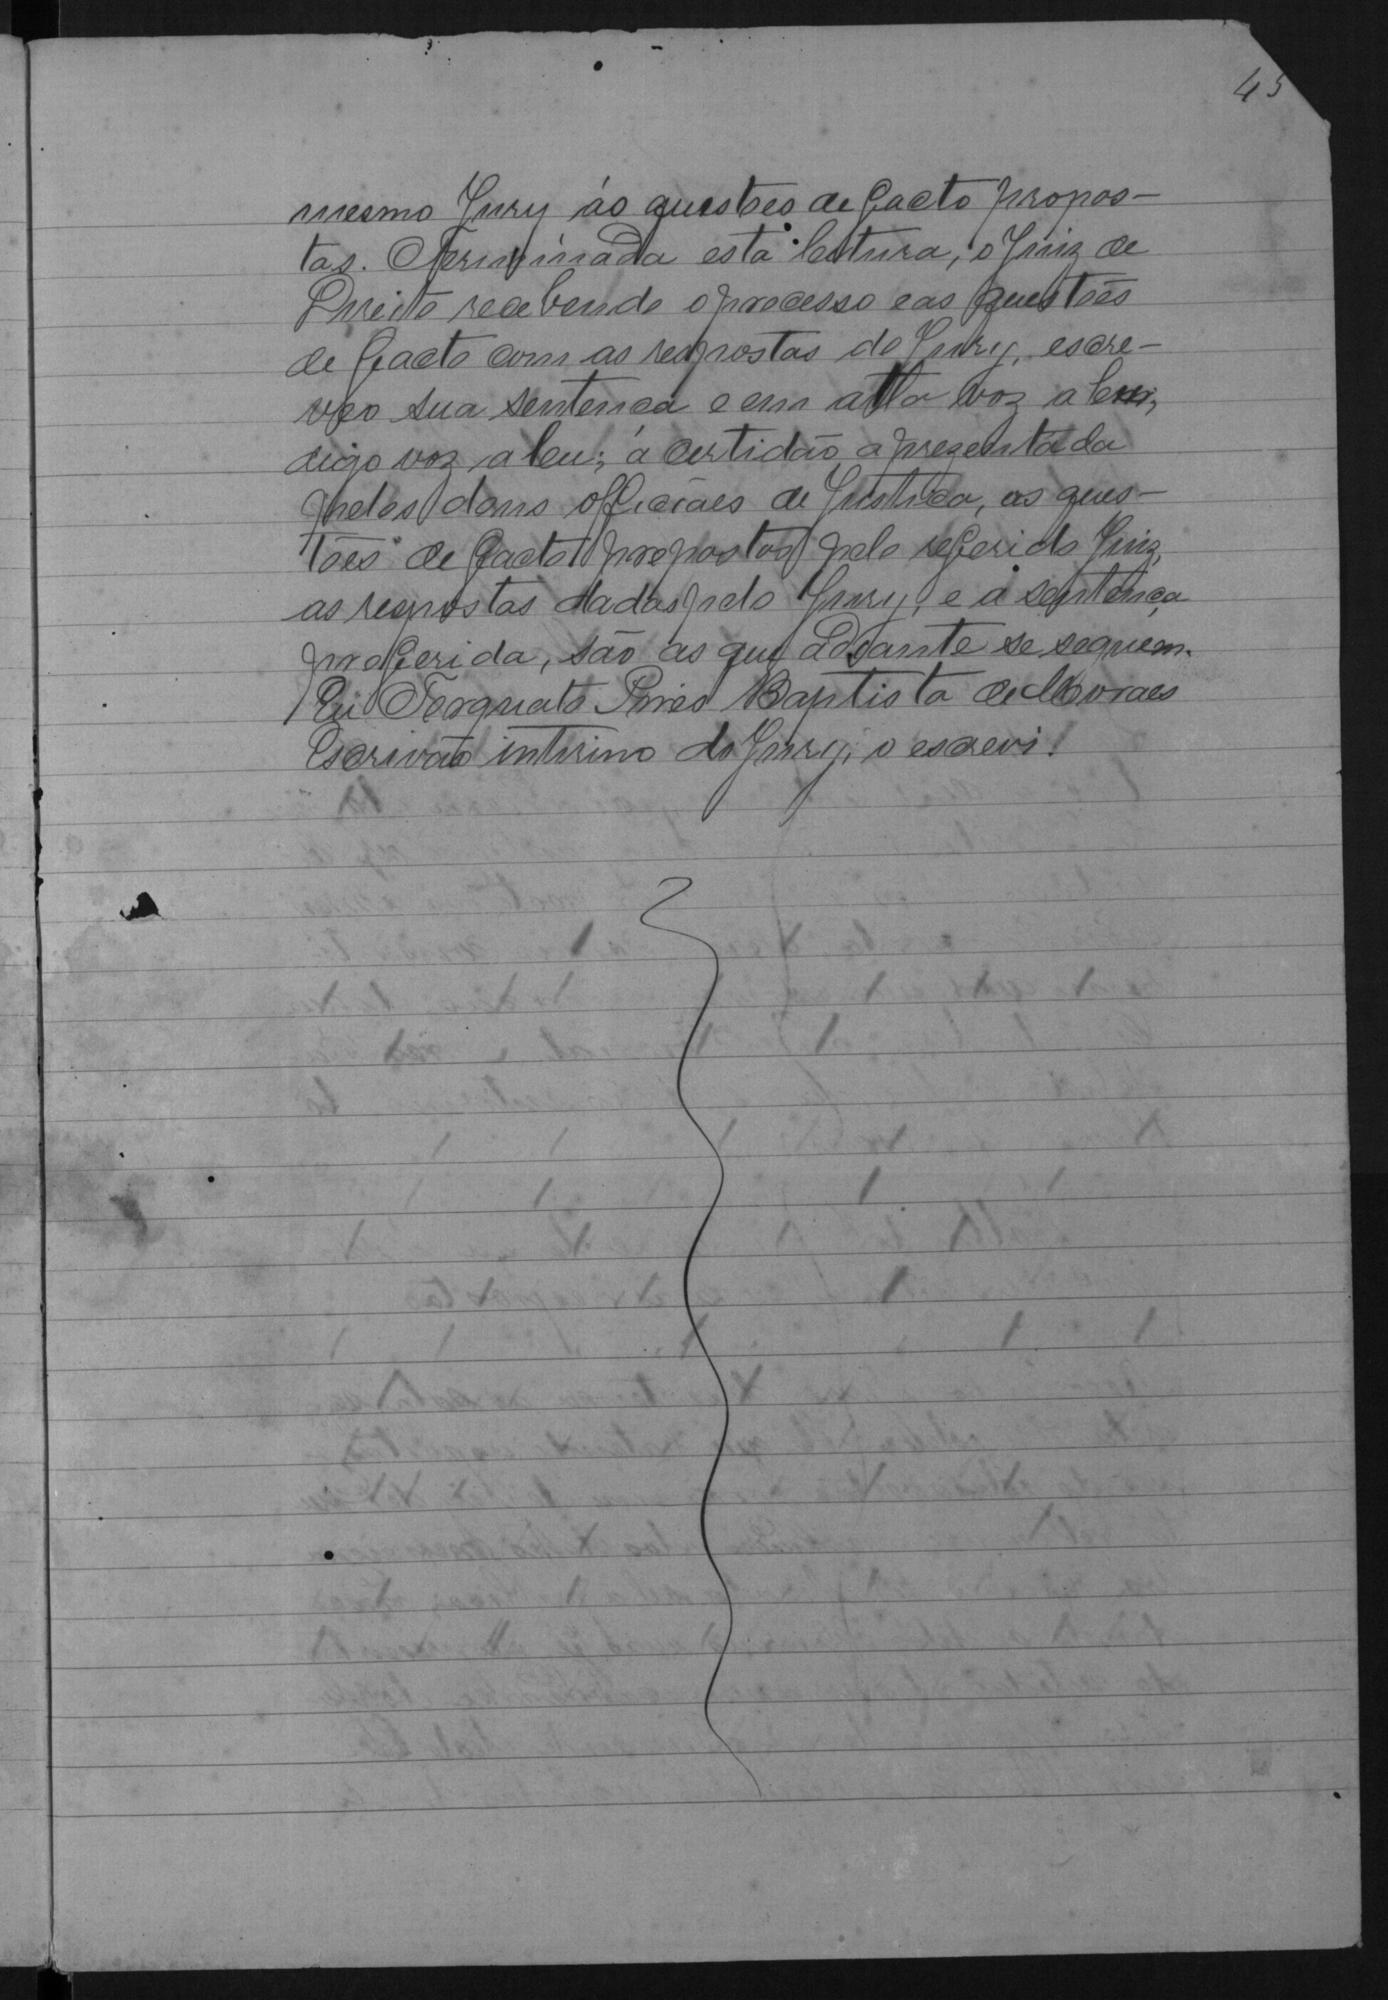 45
mesmo Jury ás questões de facto propos-
tas. Terminada esta leitura, o Juiz de
Direito recebendo o processo e as questões
de facto com as respostas do Jury, escre-
veo sua sentença e em alta voz a leu,
digo voz a leu; a certidão aprezentada
pelos dous officiaes de Justiça, as ques-
tões de facto propostas pelo referido Juiz,
as respostas dadas pelo Jury, e a sentença
proferida, são as que adiante se seguem.
Eu Torquato Pires Baptista de Moraes
Escrivão interino do Jury, o escrevi.